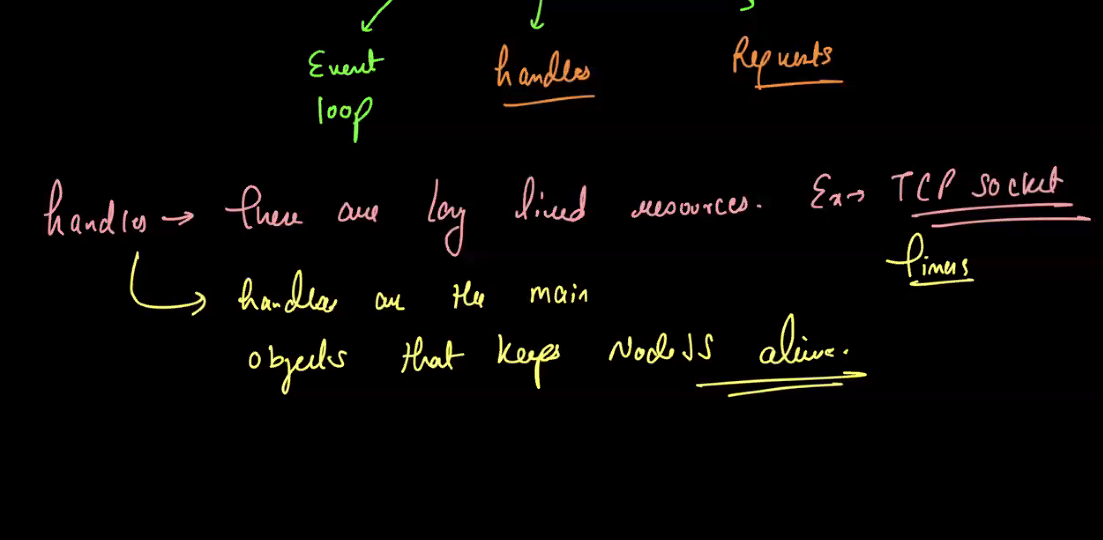 Event handles Requests
loop
handles → these are long lived resources. Ex→ TCP socket
timers
handles are the main
objects that keeps NodeJS alive.